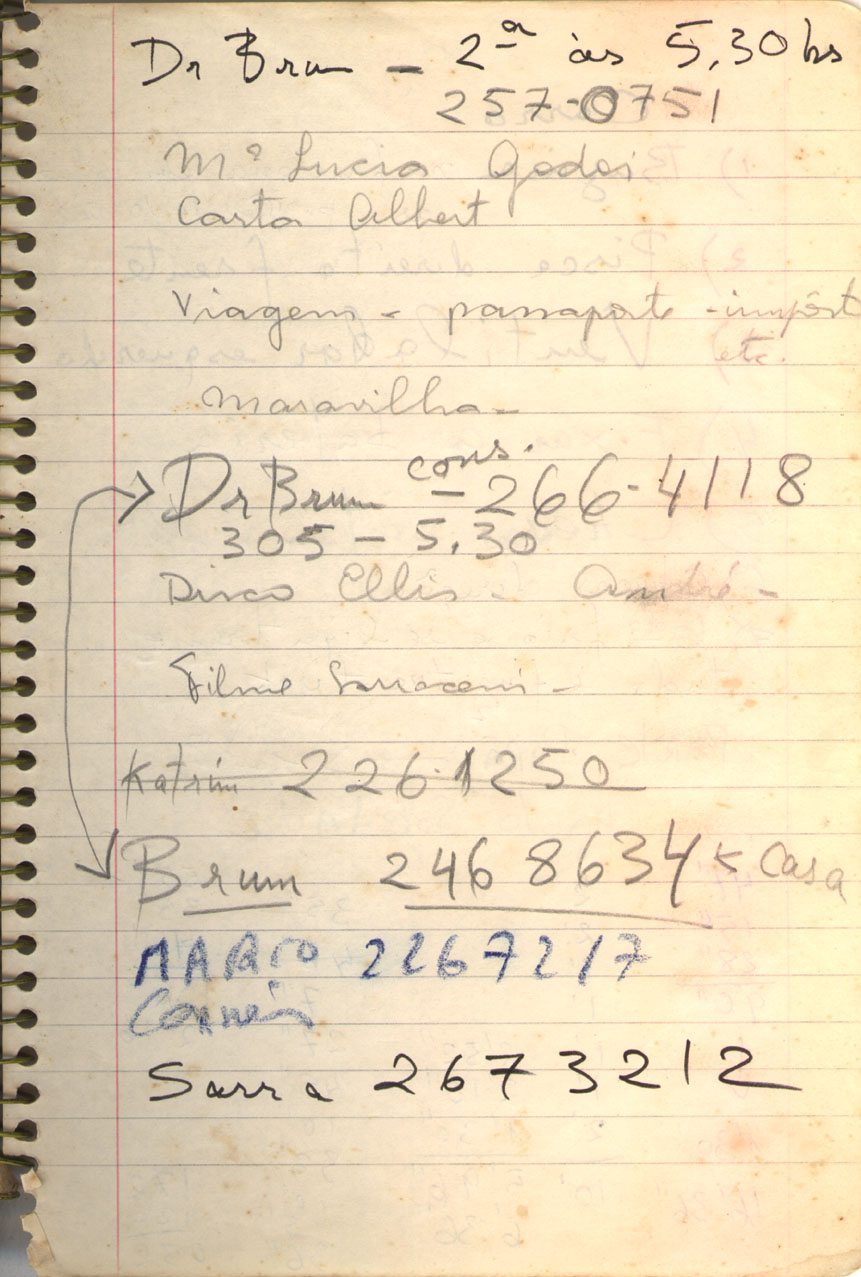 Dr Brum – 2ª às 5,30 hs
257-0751
Mª Lucia Godoi
Carta Albert
Viagem - passaporte - impôst
etc.
Maravilha -
Dr Brum cons. – 266-4118
305 – 5,30
Disco Ellis - André -
Filme Sarraceni -
Katrin 226·1250
Brum 246 8634 Casa
MARIO 2267217
Carneiro
Sarra 2673212